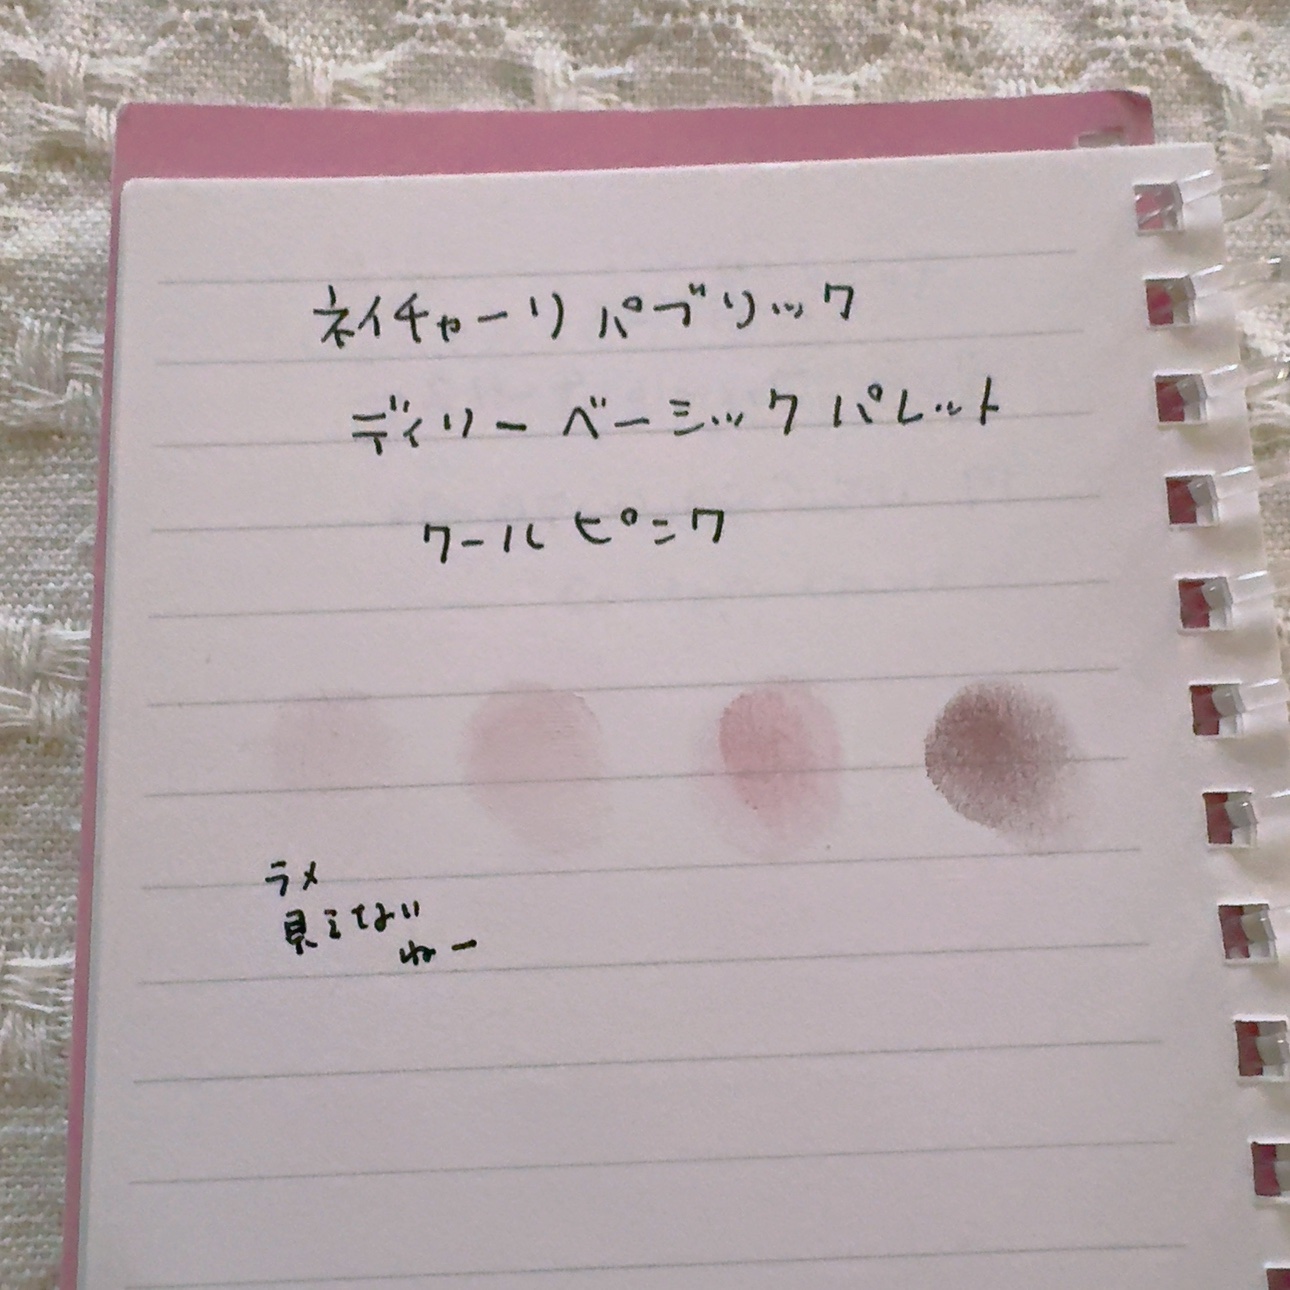 ネイチャーリパブリック
デイリーベーシックパレット
クールピンク
ラメ
見えてない
ねー